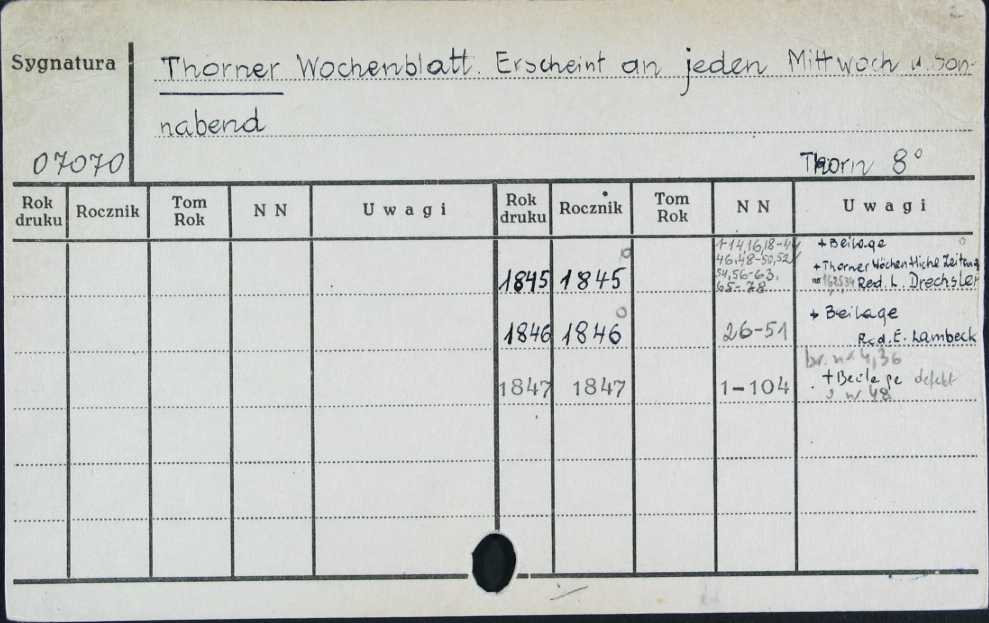 2
Sygnatura
Thorner Wochenblatt. Erscheint an jeden Mittwoch u. Son-
nabend
07070
Thorn 8°
Rok druku Rocznik Tom Rok N N Uwagi Rok druku Rocznik Tom Rok N N Uwagi
1845 1845
1-14,16,18-44
46,48-50,52
54,56-63,
65-78
+ Beilage
+ Thorner Wöchentliche Zeitung
Red. L. Drechsler
1846 1846 26-51
+ Beilage
Red. E. Lambeck
1847 1847 1-104
br. nr 4,36
+ Beilage defekt
nr 48